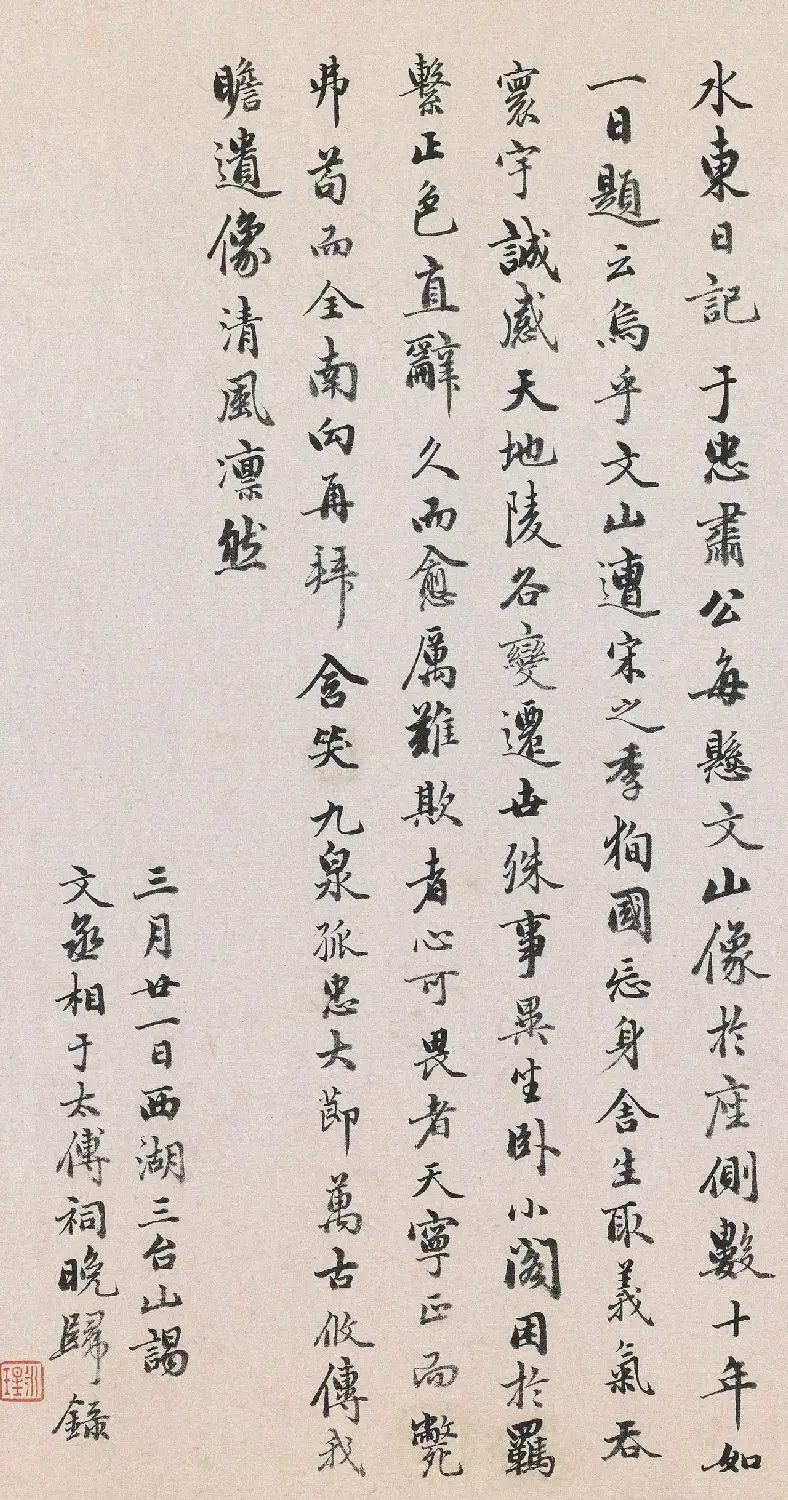 水東日記于忠肅公每懸文山像於座側數十年如
一日題云烏乎文山遭宋之季徇國忘身舍生取義氣吞
寰宇誠感天地陵谷變遷世殊事異坐臥小閣困於羈
繫正色直辭久而愈厲難欺者心可畏者天寧正而斃
弗苟而全南向再拜含笑九泉孤忠大節萬古攸傳我
瞻遺像清風凛然
三月廿一日西湖三台山謁
文丞相于太傅祠晚歸錄